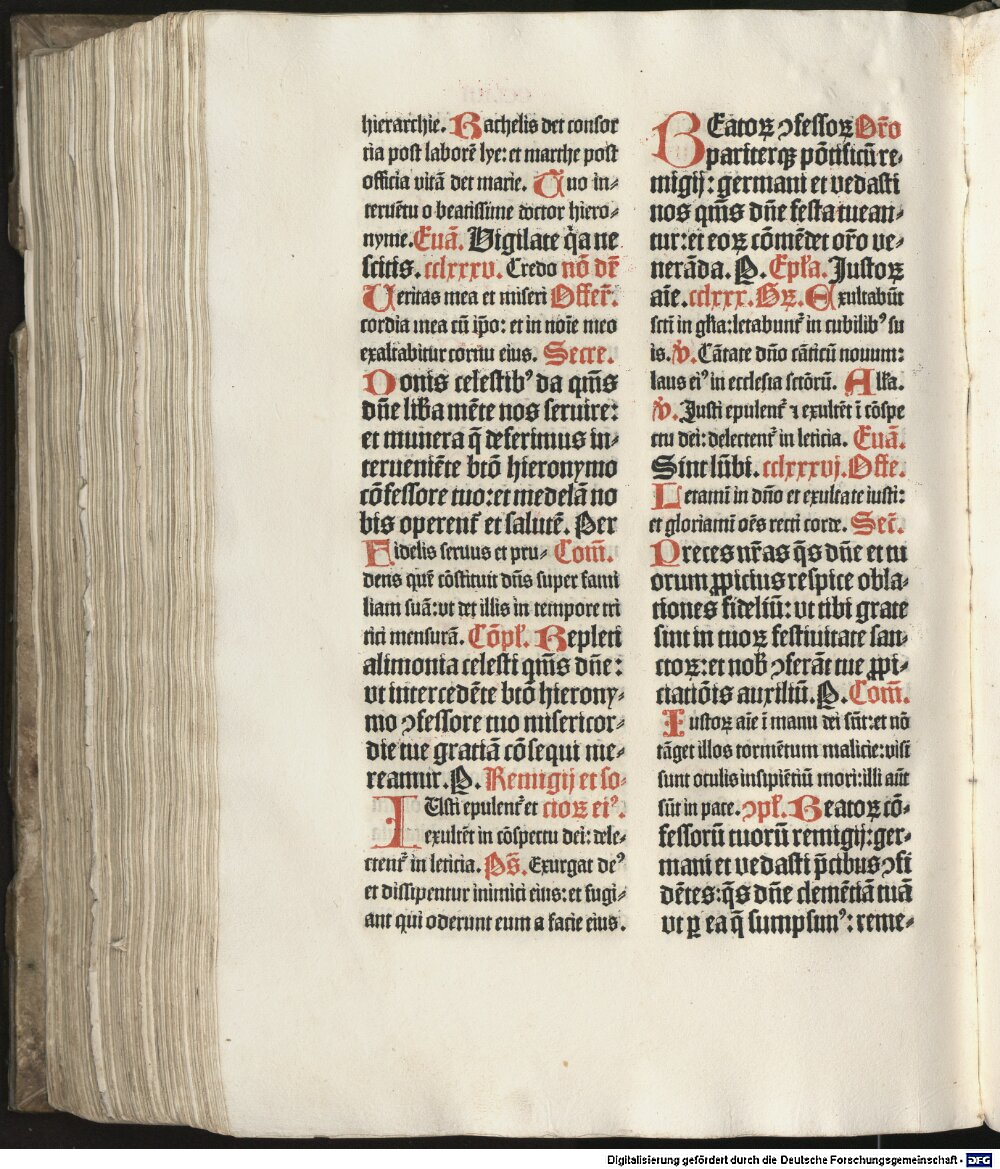 hierarchie. Rachelis det consor
tia post laborē lye: et marthe post
officia vitā det marie. Tuo in-
teruētu o beatissime doctor hiero-
nyme. Euā. Vigilate q̇a ne
scitis. cclxxxv. Credo nō dr̄
Veritas mea et miseri Offer̄.
cordia mea cū ip̄o: et in noīe meo
exaltabitur cornu eius. Secre.
Donis celestibꝰ da qm̄s
dn̄e lib̄a mēte nos seruire:
et munera q̄ deferimus in-
terueniēte btō hieronymo
cōfessore tuo: et medelā no
bis operent᷑ et salutē. Per
Fidelis seruus et pru- Com̄.
dens quē cōstituit dn̄s super fami
liam suā: vt det illis in tempore tri
tici mensurā. Cōpl̄. Repleti
alimonia celesti qm̄s dn̄e:
vt intercedēte btō hierony-
mo ↄfessore tuo misericor-
die tue gratiā cōsequi me-
reamur. P. Remigij et so-
IVsti epulent᷑ et cioꝝ eiꝰ.
exultēt in cōspectu dei: dele-
ctent᷑ in leticia. Ps̄. Exurgat deꝰ
et dissipentur inimici eius: et fugi-
ant qui oderunt eum a facie eius.
BEatoꝝ ↄfessoꝝ Or̄o
pariterqꝫ pōtificū re-
migij: germani et vedasti
nos qm̄s dn̄e festa tuean-
tur: et eoꝝ cōmēdet or̄o ve-
nerāda. P. Epl̄a. Justoꝝ
aīe. cclxxx. Gꝝ. Exultabūt
scti in gl̄ia: letabunt᷑ in cubilibꝰ su
is. v̇. Cātate dn̄o cāticū nouum:
laus eiꝰ in ecclesia sctōrū. All̄a.
v̇. Justi epulent᷑ ⁊ exultēt ī cōspe
ctu dei: delectent᷑ in leticia. Euā.
Sint lūbi. cclxxxvj. Offe.
Letamī in dn̄o et exultate iusti:
et gloriamī oēs recti corde. Secr̄.
Preces nr̄as q̄s dn̄e et tu
orum ꝓpicius respice obla-
tiones fideliū: vt tibi grate
sint in tuoꝝ festiuitate san-
ctoꝝ: et nob̄ ↄferāt tue ꝓpi-
ciatiōis auxiliū. P. Com̄.
Iustoꝝ aīe ī manu dei sūt: et nō
tāget illos tormētum malicie: visi
sunt oculis insipiētiū mori: illi aūt
sūt in pace. ↄpl̄. Beatoꝝ cō-
fessorū tuorū remigij: ger-
mani et vedasti p̄cibus ↄfi
dētes: q̄s dn̄e clemētiā tuā
vt ꝑ ea q̄ sumpsimꝰ: reme-
Digitalisierung gefördert durch die Deutsche Forschungsgemeinschaft - DFG